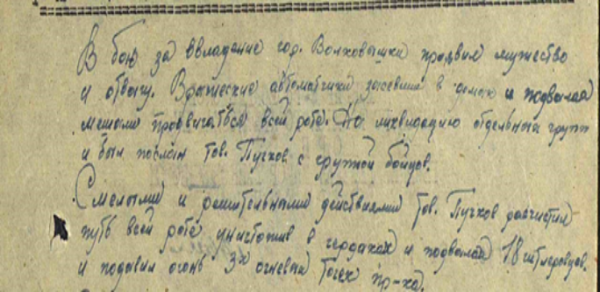 В бою за ввладение гор. Волковышки проявил мужество
и отвагу. Вражеские автоматчики засевшие в домах и подвалах
мешали продвигаться всей роте. На ликвидацию отдельных групп
и был послан тов. Пучков с группой бойцов.
Смелыми и решительными действиями тов. Пучков расчистил
путь всей роте уничтожив в чердаках и подвалах 18 гитлеровцев.
и подавил огонь 3х огневых точек пр-ка.